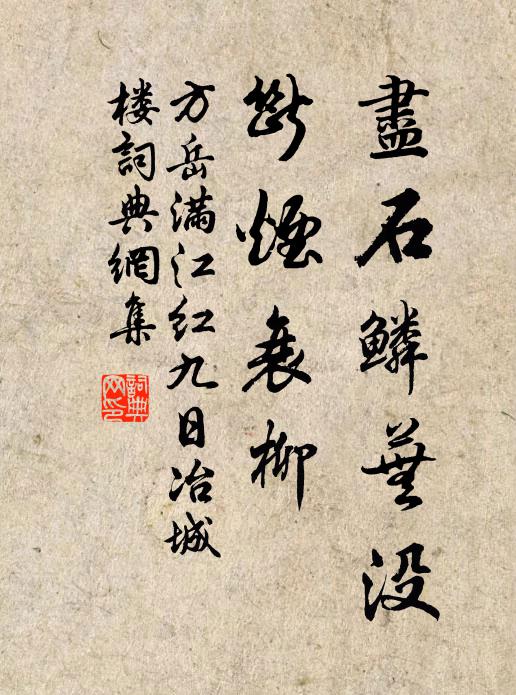 盡石鱗蕪没
斷煙衰柳
方岳滿江红九日冶城
楼詞典網集
詞典
网印